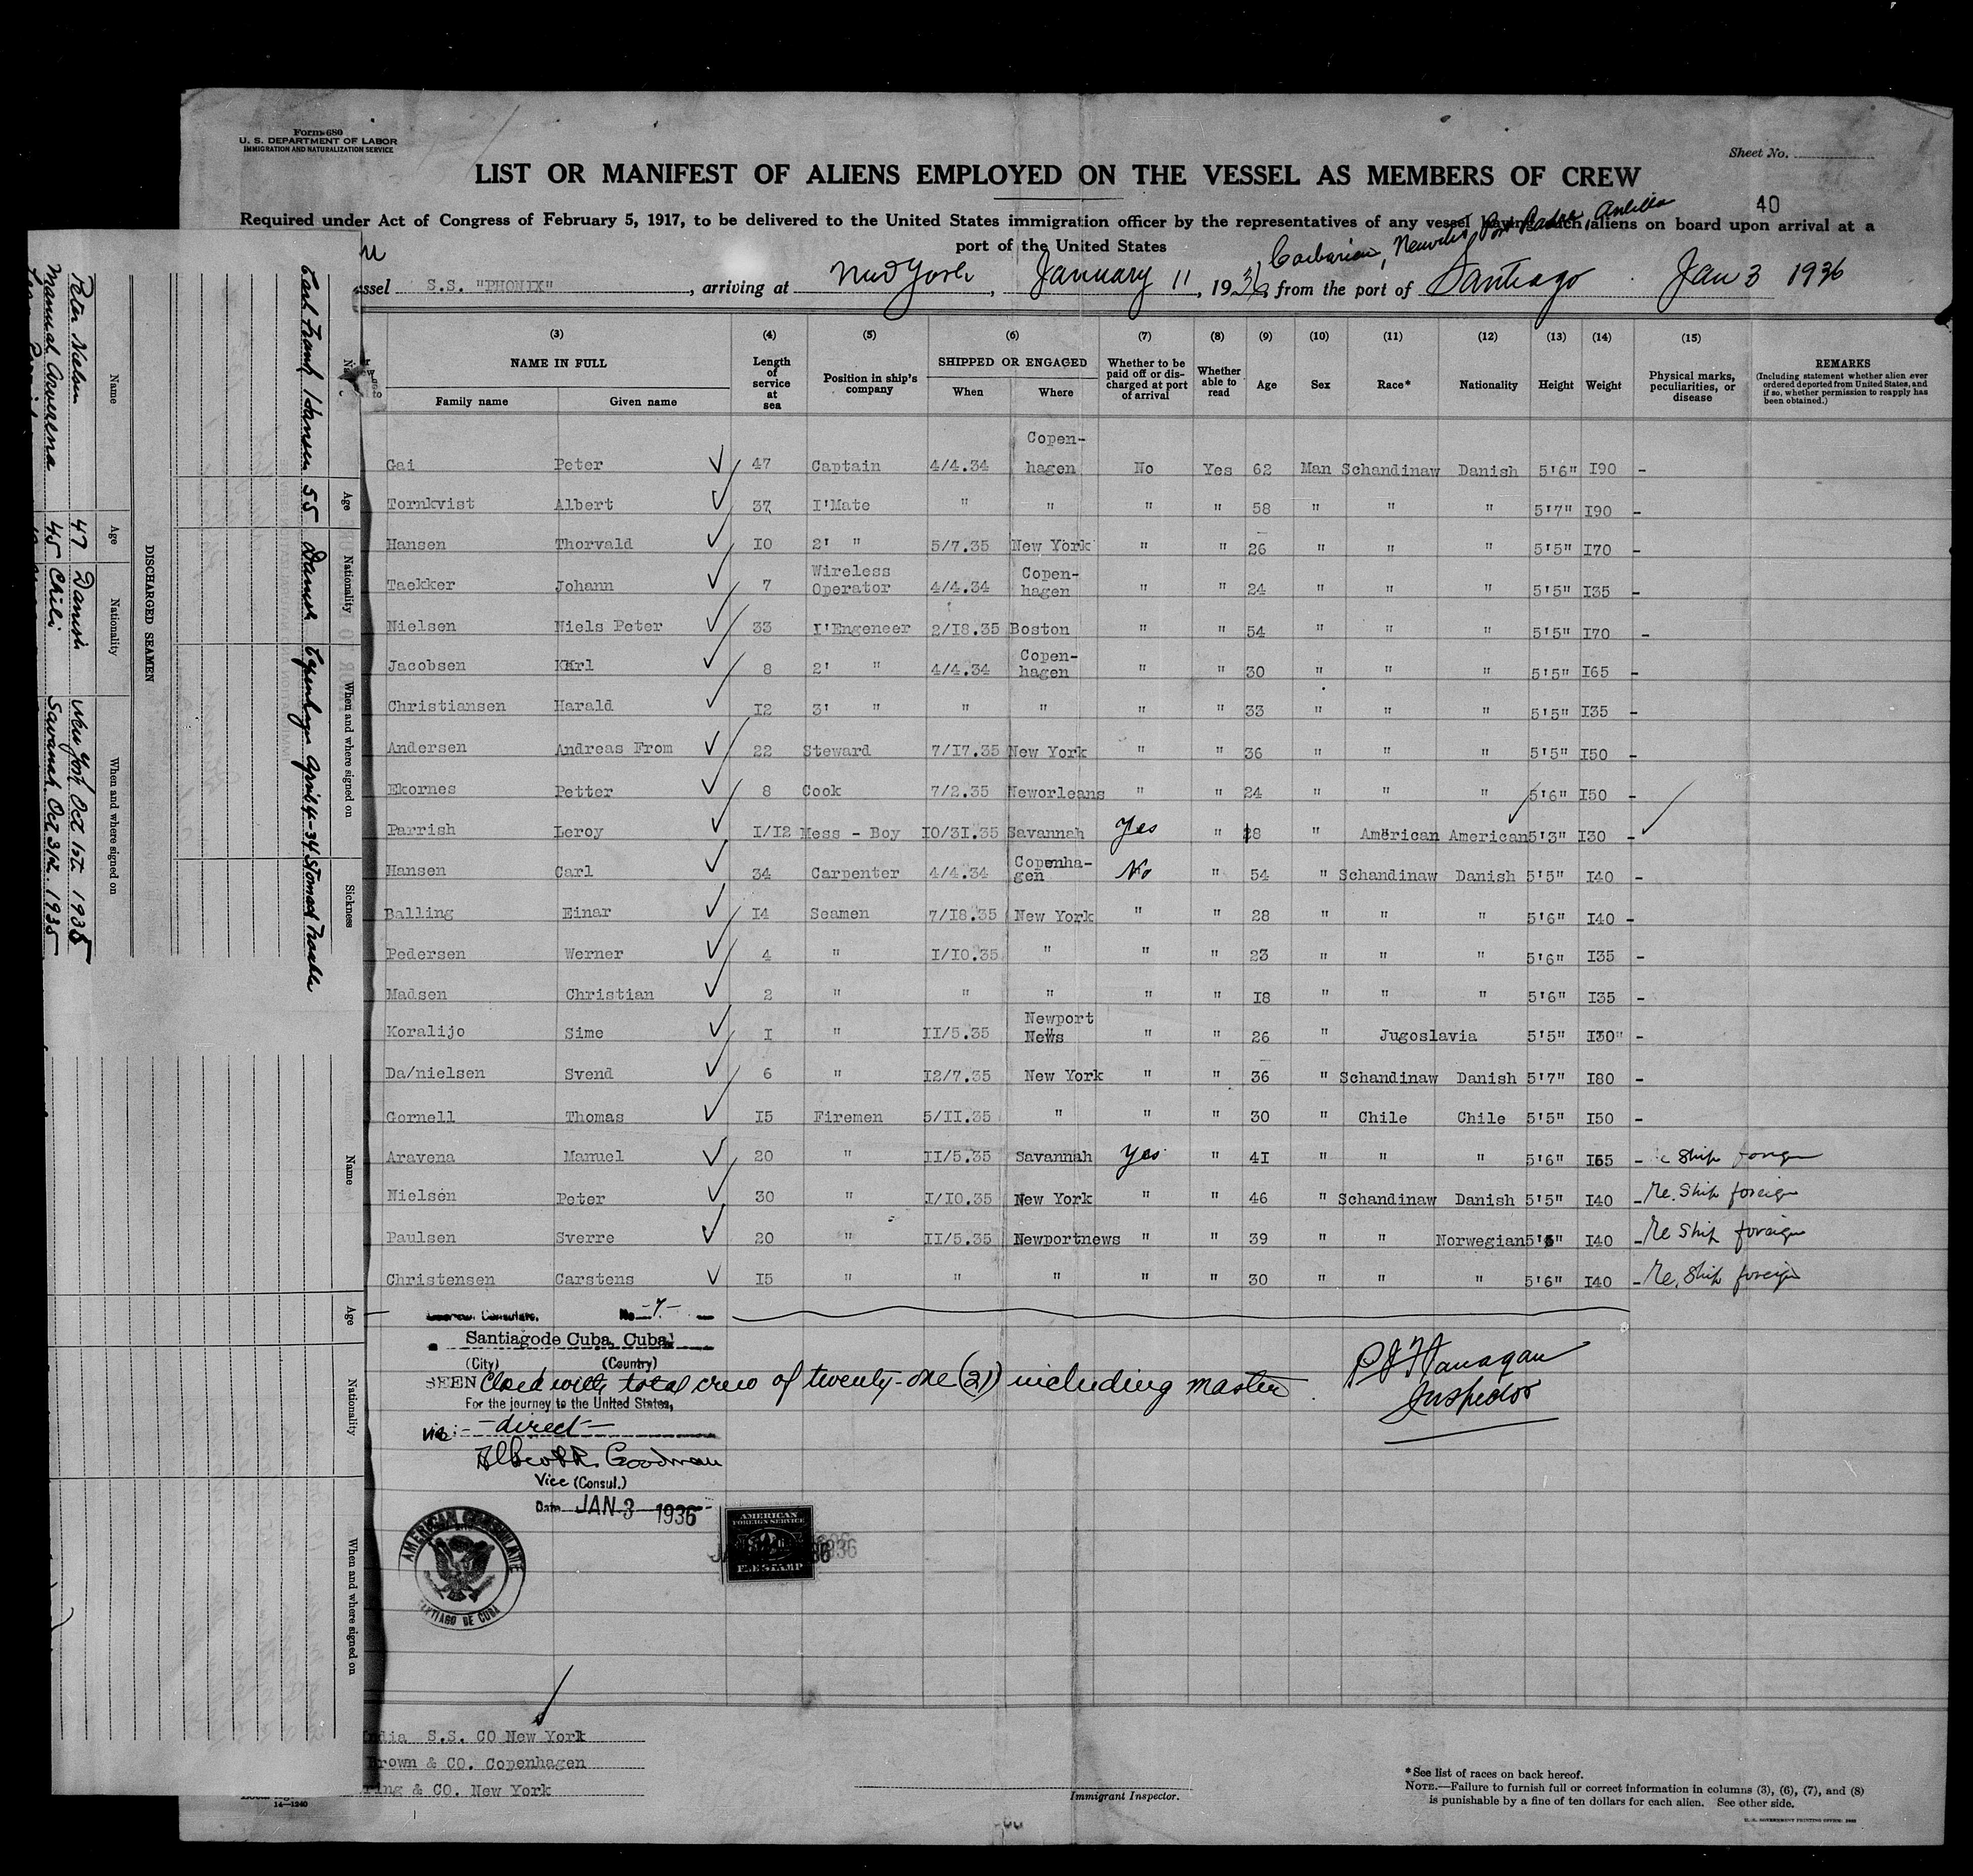 Form 680
U. S. DEPARTMENT OF LABOR
IMMIGRATION AND NATURALIZATION SERVICE
Sheet No.
LIST OR MANIFEST OF ALIENS EMPLOYED ON THE VESSEL AS MEMBERS OF CREW
40
Required under Act of Congress of February 5, 1917, to be delivered to the United States immigration officer by the representatives of any vessel having such aliens on board upon arrival at a
port of the United States
Antilla
S.S. "PHONIX", arriving at New York, January 11, 1936, from the port of Santiago Jan 3 1936
(3) (4) (5) (6) (7) (8) (9) (10) (11) (12) (13) (14) (15)
NAME IN FULL Family name Given name
Length of service at sea
Position in ship's company
SHIPPED OR ENGAGED When Where
Whether to be paid off or discharged at port of arrival
Whether able to read
Age Sex Race* Nationality Height Weight
Physical marks, peculiarities, or disease
REMARKS
(Including statement whether alien ever ordered deported from United States, and if so, whether permission to reapply has been obtained.)
Gai Peter 47 Captain 4/4.34 Copen-hagen No Yes 62 Man Schandinaw Danish 5'6" I90 -
Tornkvist Albert 37 I'Mate " " " " 58 " " " 5'7" I90 -
Hansen Thorvald IO 2' " 5/7.35 New York " " 26 " " " 5'5" I70 -
Taekker Johann 7 Wireless Operator 4/4.34 Copen-hagen " " 24 " " " 5'5" I35 -
Nielsen Niels Peter 33 I'Engeneer 2/I8.35 Boston " " 54 " " " 5'5" I70 -
Jacobsen Karl 8 2' " 4/4.34 Copen-hagen " " 30 " " " 5'5" I65 -
Christiansen Harald I2 3' " " " " " 33 " " " 5'5" I35 -
Andersen Andreas From 22 Steward 7/I7.35 New York " " 36 " " " 5'5" I50 -
Ekornes Petter 8 Cook 7/2.35 Neworleans " " 24 " " " 5'6" I50 -
Parrish Leroy I/I2 Mess - Boy IO/3I.35 Savannah Yes " 28 " American American 5'3" I30 -
Hansen Carl 34 Carpenter 4/4.34 Copenha-gen No " 54 " Schandinaw Danish 5'5" I40 -
Balling Einar I4 Seamen 7/I8.35 New York " " 28 " " " 5'6" I40 -
Pedersen Werner 4 " I/IO.35 " " " 23 " " " 5'6" I35 -
Madsen Christian 2 " " " " " I8 " " " 5'6" I35 -
Koralijo Sime I " II/5.35 Newport News " " 26 " Jugoslavia 5'5" I30" -
Da/nielsen Svend 6 " I2/7.35 New York " " 36 " Schandinaw Danish 5'7" I80 -
Gornell Thomas I5 Firemen 5/II.35 " " " 30 " Chile Chile 5'5" I50 -
Aravena Manuel 20 " II/5.35 Savannah Yes " 4I " " " 5'6" I65 - Ship foreign
Nielsen Peter 30 " I/IO.35 New York " " 46 " Schandinaw Danish 5'5" I40 - Re. Ship foreign
Paulsen Sverre 20 " II/5.35 Newportnews " " 39 " " Norwegian 5'6" I40 - Re Ship foreign
Christensen Carstens I5 " " " " " 30 " " " 5'6" I40 - Re. Ship foreign
American Consulate. No -7-
Santiago de Cuba, Cuba
(City) (Country)
SEEN Closed with total crew of twenty-one (21) including master.
P J Flanagan
Inspector
For the journey to the United States,
via: - direct -
Albert R. Goodman
Vice (Consul.)
Date JAN 3 1936
AMERICAN CONSULATE
SANTIAGO DE CUBA
AMERICAN FOREIGN SERVICE
FEE STAMP
India S.S. CO New York
Brown & CO. Copenhagen
& CO. New York
14—1240
Immigrant Inspector.
*See list of races on back hereof.
NOTE.—Failure to furnish full or correct information in columns (3), (6), (7), and (8)
is punishable by a fine of ten dollars for each alien. See other side.
U. S. GOVERNMENT PRINTING OFFICE
Name Age Nationality When and where signed on Sickness
Carl Frantz Hansen 55 Danish Copenhagen April 4-34 Stomach Trouble
DISCHARGED SEAMEN
Name Age Nationality When and where signed on
Peter Nielsen 47 Danish New York Oct 1st 1935
Manual Arverena 45 Chili Savannah Oct 31st. 1935
Name Age Nationality When and where signed on